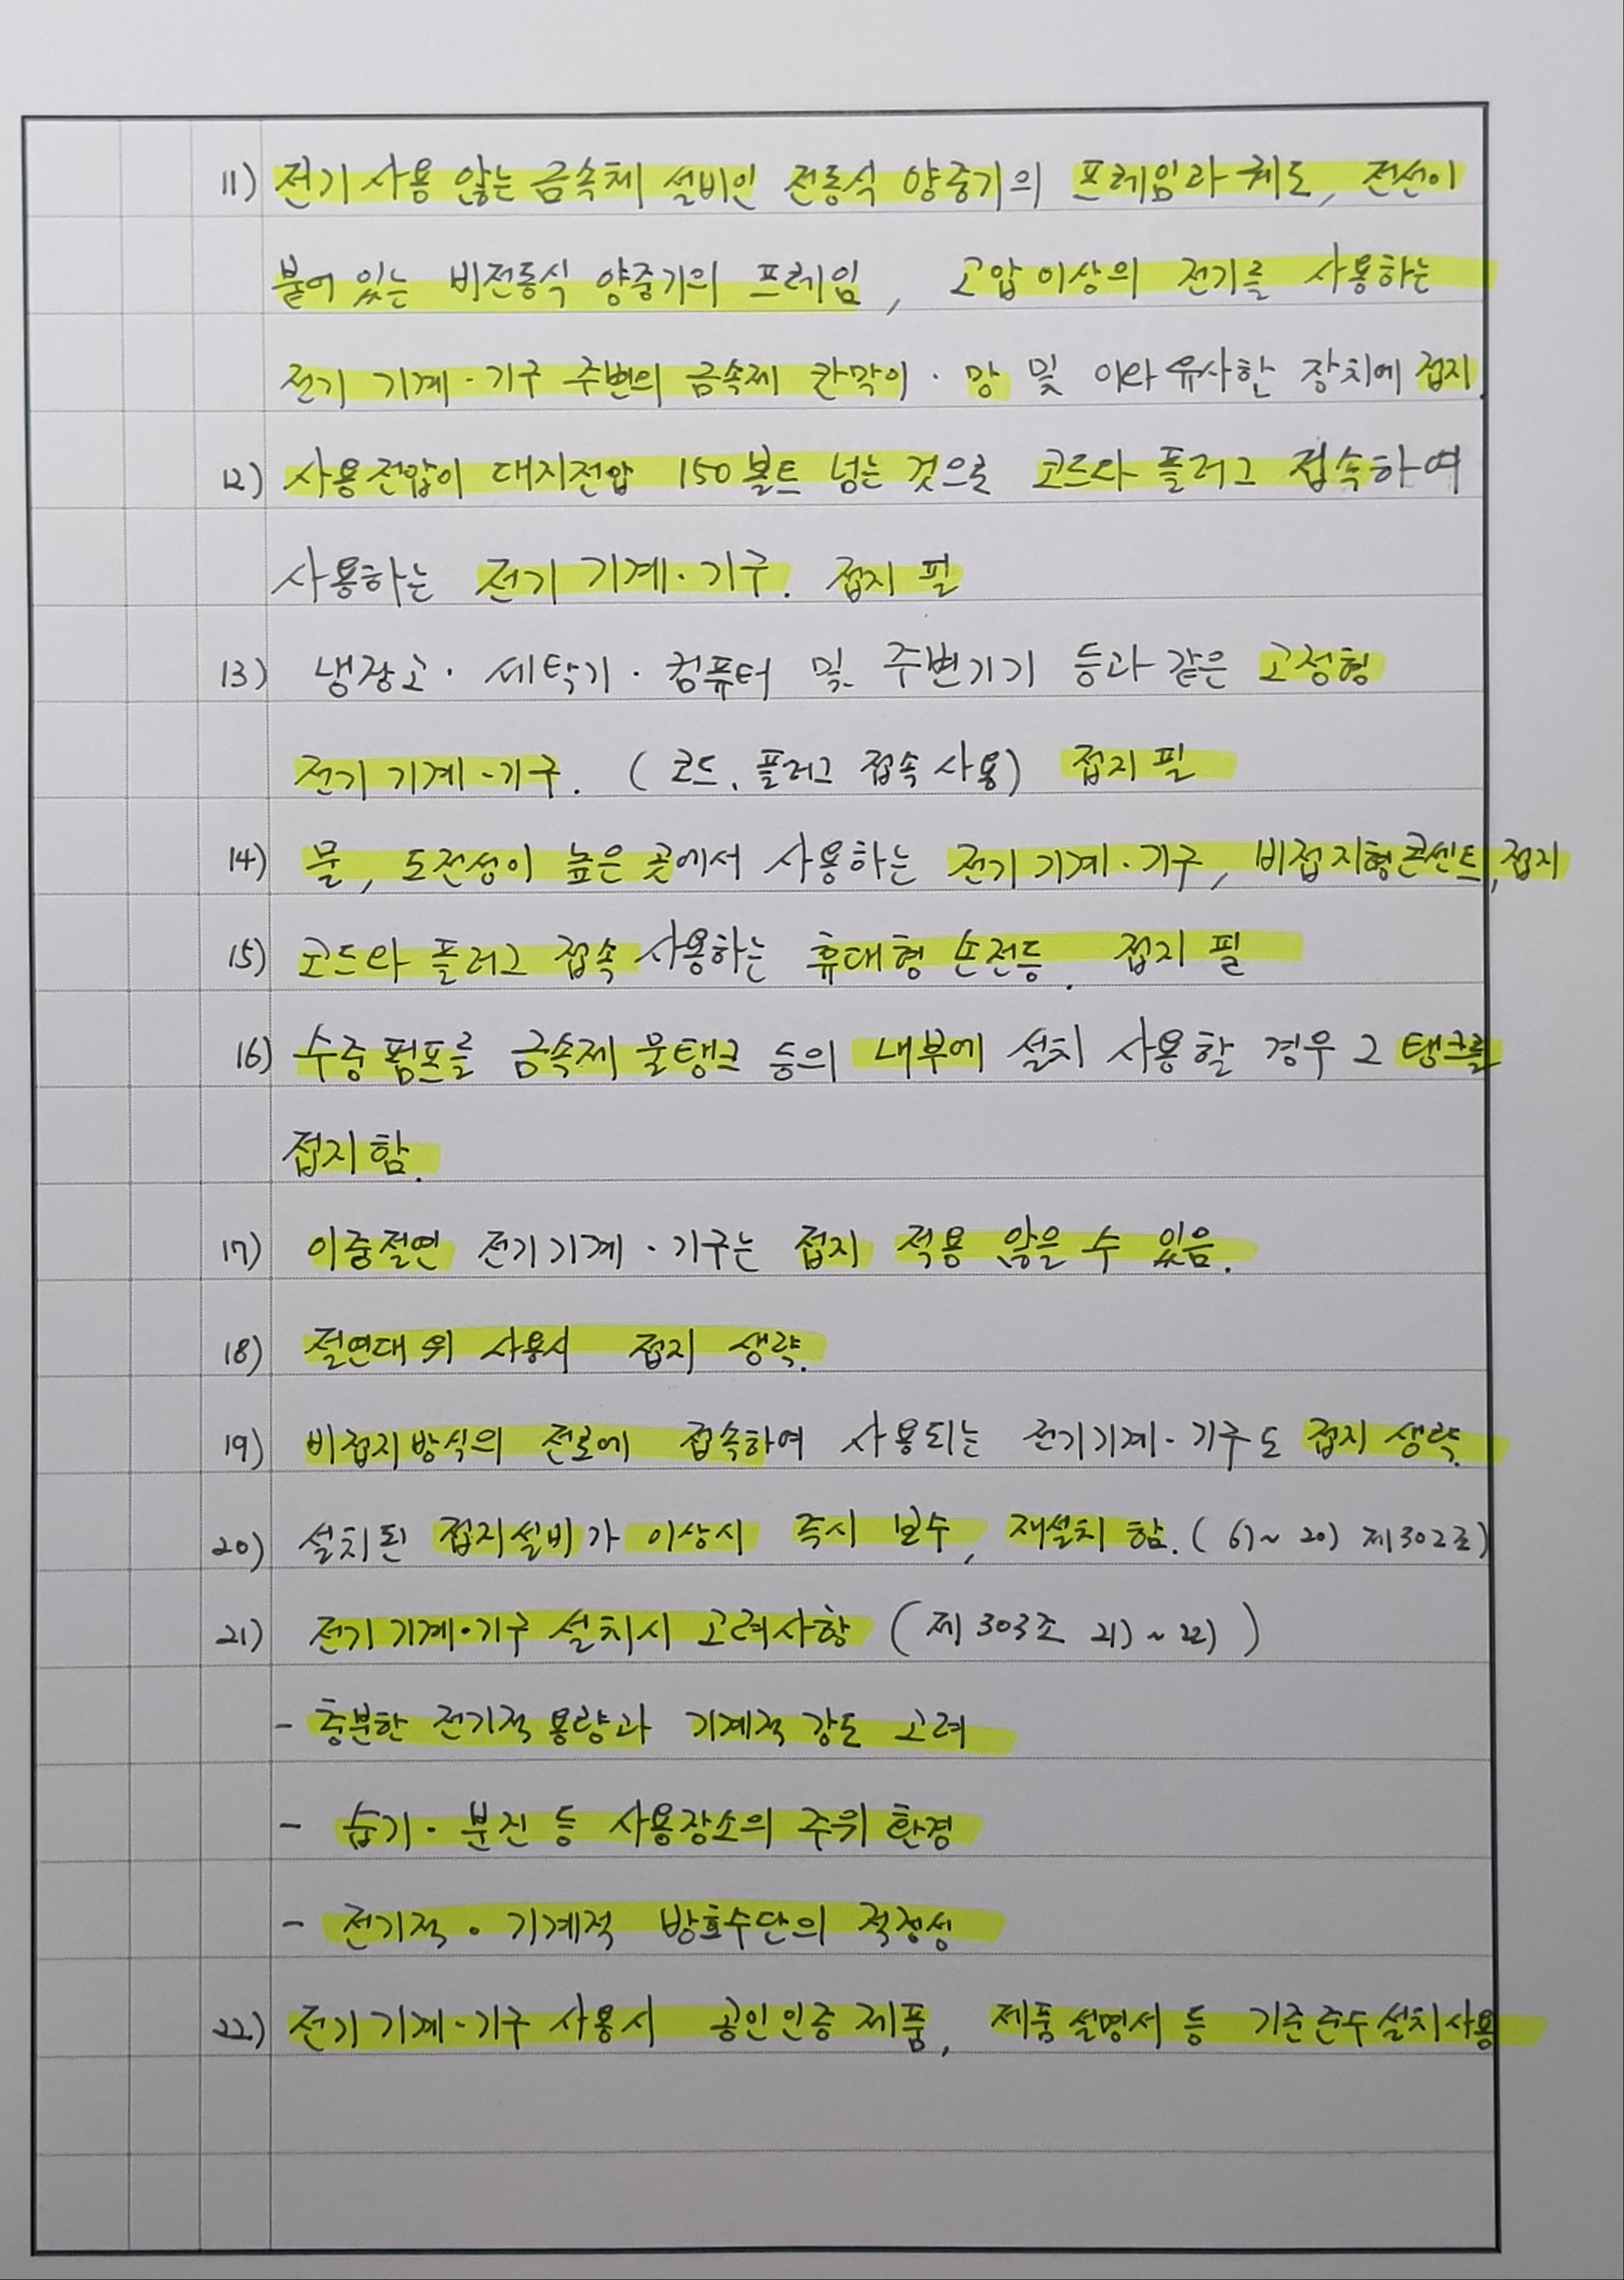 11) 전기 사용 않는 금속체 설비인 전동식 양중기의 프레임과 궤도, 전선이
붙어 있는 비전동식 양중기의 프레임, 고압이상의 전기를 사용하는
전기 기계·기구 주변의 금속제 칸막이·망 및 이와 유사한 장치에 접지.
12) 사용전압이 대지전압 150볼트 넘는 것으로 코드와 플러그 접속하여
사용하는 전기 기계·기구. 접지 필
13) 냉장고·세탁기·컴퓨터 및 주변기기 등과 같은 고정형
전기 기계·기구. (코드, 플러그 접속 사용) 접지 필
14) 물, 도전성이 높은 곳에서 사용하는 전기 기계·기구, 비접지형콘센트, 접지
15) 코드와 플러그 접속 사용하는 휴대형 손전등. 접지 필
16) 수중 펌프를 금속제 물탱크 등의 내부에 설치 사용할 경우 그 탱크를
접지함.
17) 이중절연 전기기계·기구는 접지 적용 않을 수 있음.
18) 절연대 위 사용시 접지 생략.
19) 비접지방식의 전로에 접속하여 사용되는 전기기계·기구도 접지 생략.
20) 설치된 접지설비가 이상시 즉시 보수, 재설치 함. ( 6)~ 20) 제302조)
21) 전기 기계·기구 설치시 고려사항 (제303조 21) ~ 22) )
- 충분한 전기적 용량과 기계적 강도 고려
- 습기·분진 등 사용장소의 주위 환경
- 전기적·기계적 방호수단의 적정성
22) 전기 기계·기구 사용시 공인인증 제품, 제품 설명서 등 기준준수 설치사용